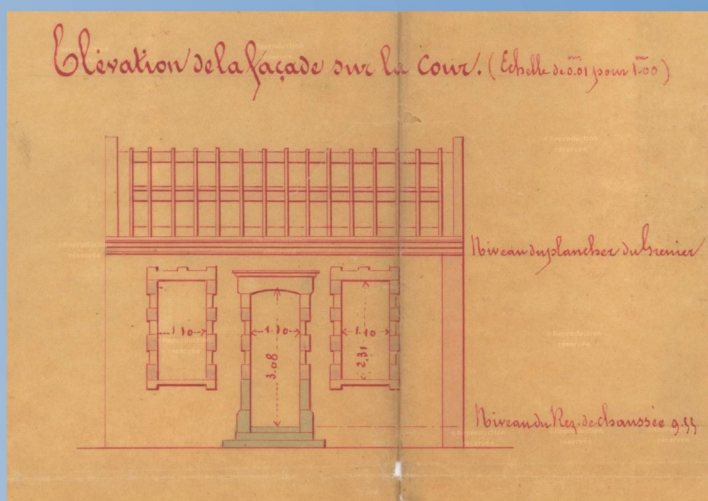 Elévation de la façade sur la Cour. (Echelle de 0.01 pour 1.00)
Niveau du plancher du Grenier
1.10
1.10
1.10
3.08
2.31
Niveau du Rez-de-chaussée 9.55